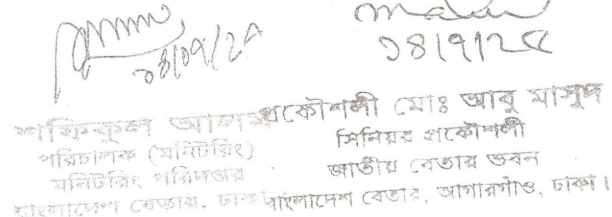 ১৪/০৭/২৫
১৪/৭/২৫
শফিকুল আলম
পরিচালক (মনিটরিং)
মনিটরিং পরিদপ্তর
বাংলাদেশ বেতার, ঢাকা
প্রকৌশলী মোঃ আবু মাসুদ
সিনিয়র প্রকৌশলী
জাতীয় বেতার ভবন
বাংলাদেশ বেতার, আগারগাঁও, ঢাকা।